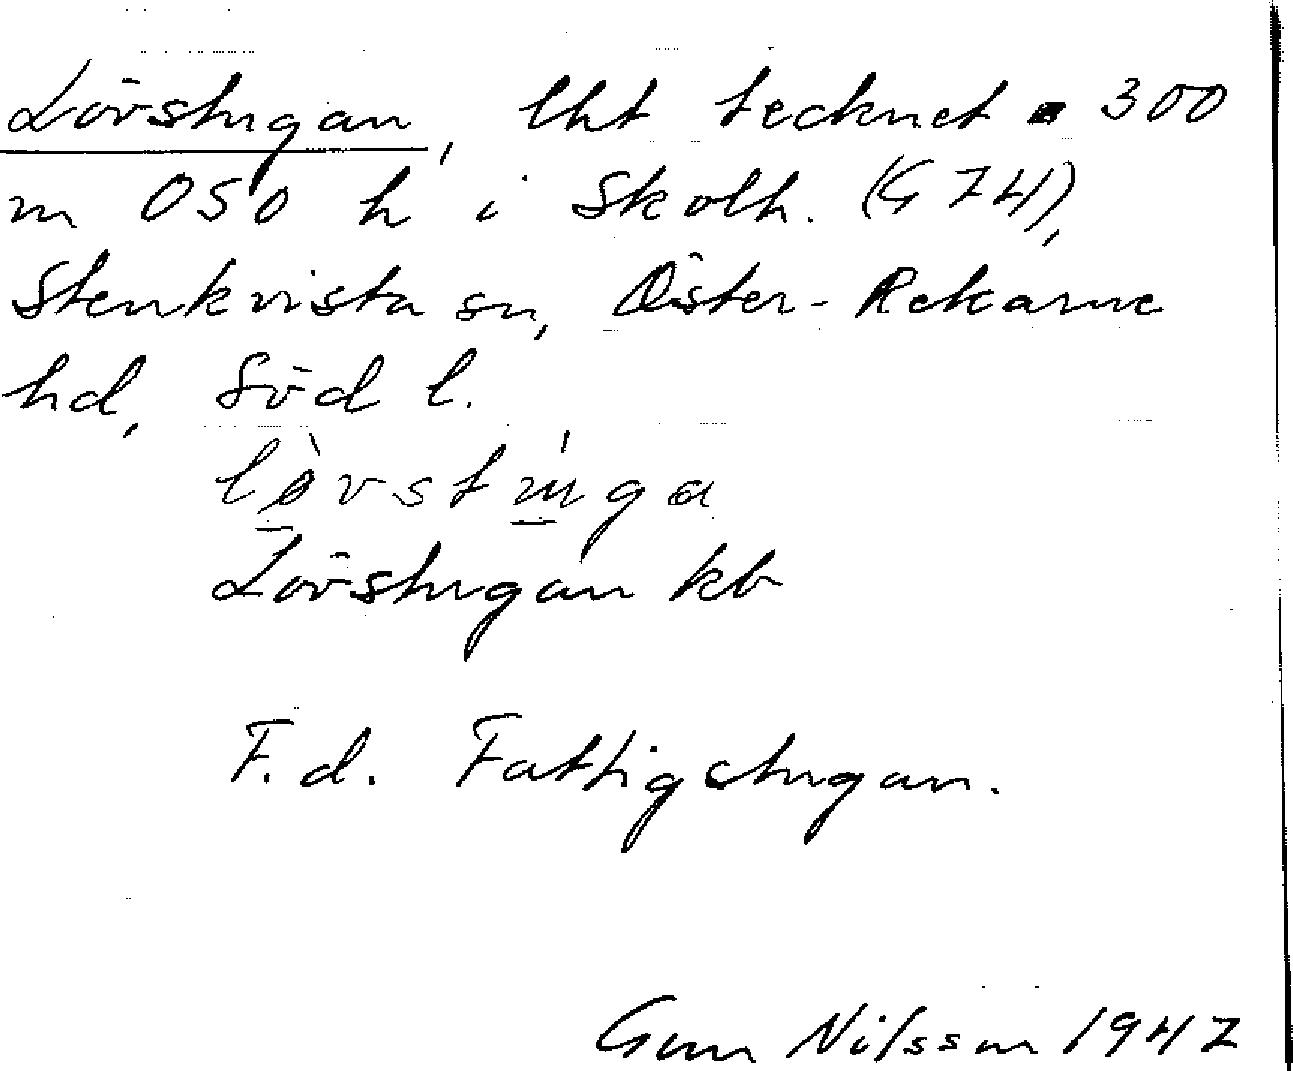 Lövstugan, lht tecknet ▪ 300
m OSO h i Skolh. (G 74),
Stenkvista sn, Öster-Rekarne
hd, Söd l.
lø̀vstúga
Lövstugan kb
F.d. Fattigstugan.
Gun Nilsson 1947